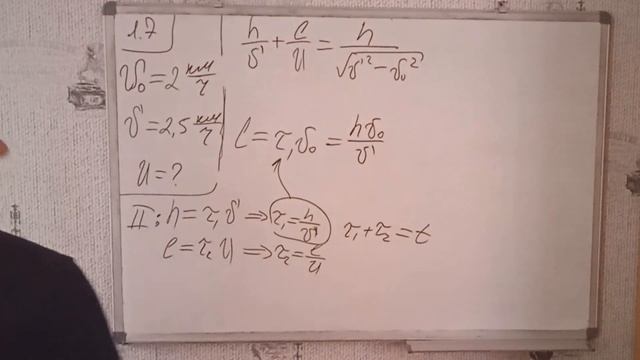 1.7
v₀ = 2 км/ч
v' = 2,5 км/ч
u = ?
h/v' + l/u = h/√(v'² − v₀²)
l = τ₁v₀ = hv₀/v'
II: h = τ₁v' ⇒ τ₁ = h/v' τ₁ + τ₂ = t
l = τ₂u ⇒ τ₂ = l/u